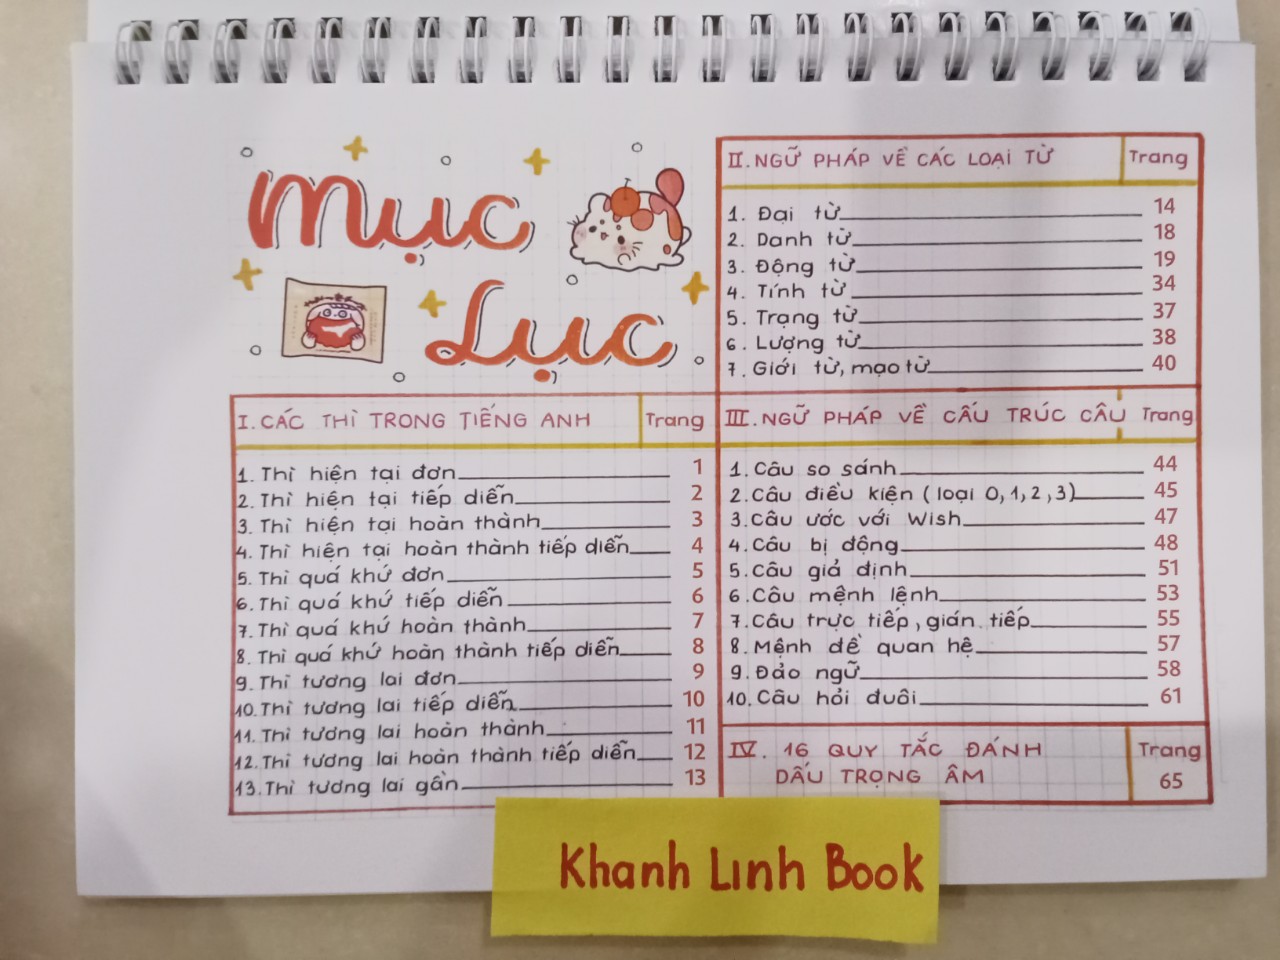 Mục
Lục
I. CÁC THÌ TRONG TIẾNG ANH Trang
1. Thì hiện tại đơn 1
2. Thì hiện tại tiếp diễn 2
3. Thì hiện tại hoàn thành 3
4. Thì hiện tại hoàn thành tiếp diễn 4
5. Thì quá khứ đơn 5
6. Thì quá khứ tiếp diễn 6
7. Thì quá khứ hoàn thành 7
8. Thì quá khứ hoàn thành tiếp diễn 8
9. Thì tương lai đơn 9
10. Thì tương lai tiếp diễn 10
11. Thì tương lai hoàn thành 11
12. Thì tương lai hoàn thành tiếp diễn 12
13. Thì tương lai gần 13
II. NGỮ PHÁP VỀ CÁC LOẠI TỪ Trang
1. Đại từ 14
2. Danh từ 18
3. Động từ 19
4. Tính từ 34
5. Trạng từ 37
6. Lượng từ 38
7. Giới từ, mạo từ 40
III. NGỮ PHÁP VỀ CẤU TRÚC CÂU Trang
1. Câu so sánh 44
2. Câu điều kiện (loại 0, 1, 2, 3) 45
3. Câu ước với Wish 47
4. Câu bị động 48
5. Câu giả định 51
6. Câu mệnh lệnh 53
7. Câu trực tiếp, gián tiếp 55
8. Mệnh đề quan hệ 57
9. Đảo ngữ 58
10. Câu hỏi đuôi 61
IV. 16 QUY TẮC ĐÁNH Trang
DẤU TRỌNG ÂM 65
Khanh Linh Book